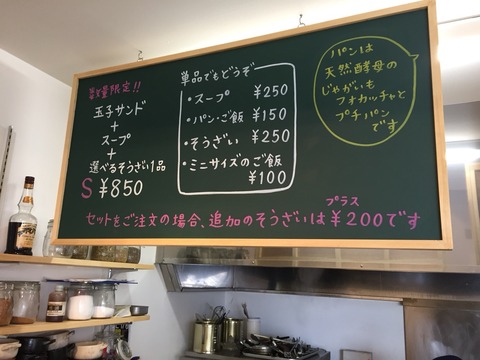 数量限定!!
玉子サンド
+
スープ
+
選べるそうざい1品
S ¥850
単品でもどうぞ
・スープ ¥250
・パン・ご飯 ¥150
・そうざい ¥250
・ミニサイズのご飯
¥100
パンは
天然酵母の
じゃがいも
フォカッチャと
プチパン
です
プラス
セットをご注文の場合、追加のそうざいは¥200です